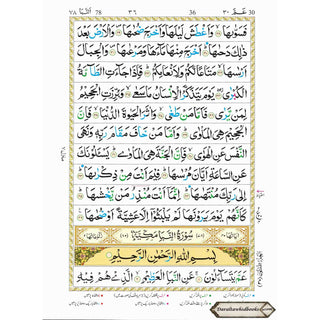 30 عَمَّ ٣٠ 36 ٣٦ 78 اَلنَّبَا ٧٨
فَسَوّٰىهَا وَاَغْطَشَ لَيْلَهَا وَاَخْرَجَ ضُحٰىهَا وَالْاَرْضَ بَعْدَ
ذٰلِكَ دَحٰىهَا اَخْرَجَ مِنْهَا مَآءَهَا وَمَرْعٰىهَا وَالْجِبَالَ
اَرْسٰىهَا مَتَاعًا لَّكُمْ وَلِاَنْعَامِكُمْ فَاِذَا جَآءَتِ الطَّآمَّةُ
الْكُبْرٰى يَوْمَ يَتَذَكَّرُ الْاِنْسَانُ مَا سَعٰى وَبُرِّزَتِ الْجَحِيْمُ
لِمَنْ يَّرٰى فَاَمَّا مَنْ طَغٰى وَاٰثَرَ الْحَيٰوةَ الدُّنْيَا فَاِنَّ
الْجَحِيْمَ هِيَ الْمَاْوٰى وَاَمَّا مَنْ خَافَ مَقَامَ رَبِّهٖ وَنَهَى
النَّفْسَ عَنِ الْهَوٰى فَاِنَّ الْجَنَّةَ هِيَ الْمَاْوٰى يَسْـَٔلُوْنَكَ
عَنِ السَّاعَةِ اَيَّانَ مُرْسٰىهَا فِيْمَ اَنْتَ مِنْ ذِكْرٰىهَا
اِلٰى رَبِّكَ مُنْتَهٰىهَا اِنَّمَآ اَنْتَ مُنْذِرُ مَنْ يَّخْشٰىهَا
كَاَنَّهُمْ يَوْمَ يَرَوْنَهَا لَمْ يَلْبَثُوْٓا اِلَّا عَشِيَّةً اَوْ ضُحٰىهَا
سُوْرَةُ النَّبَاِ مَكِّيَّةٌ
بِسْمِ اللّٰهِ الرَّحْمٰنِ الرَّحِيْمِ
عَمَّ يَتَسَآءَلُوْنَ عَنِ النَّبَاِ الْعَظِيْمِ الَّذِيْ هُمْ فِيْهِ
Darultawhidbooks.com